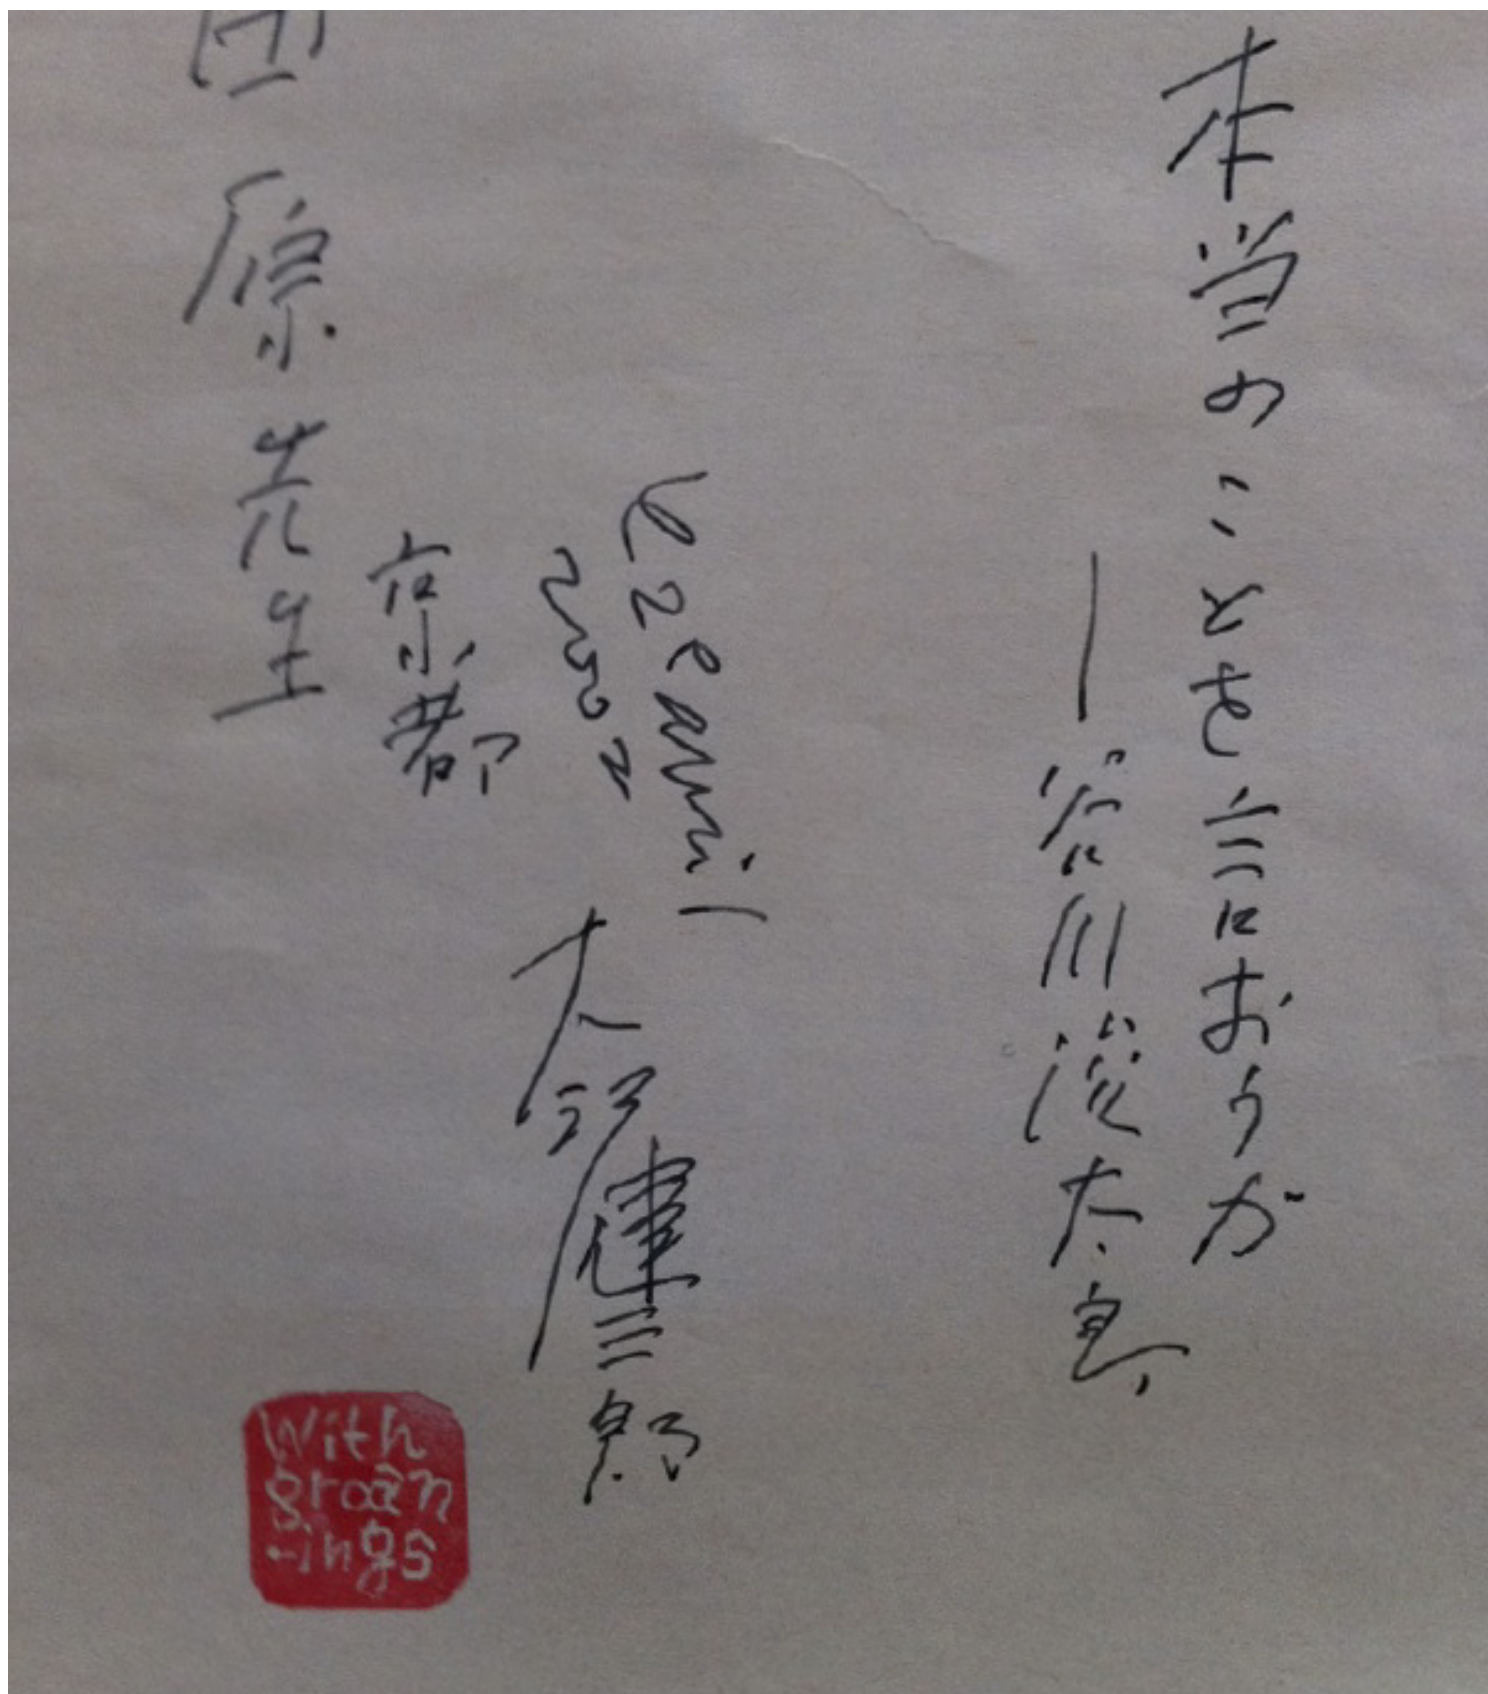 本当のことを言おうか
—谷川俊太郎
2002
大江健三郎
京都
田原先生
With
groan
-ings